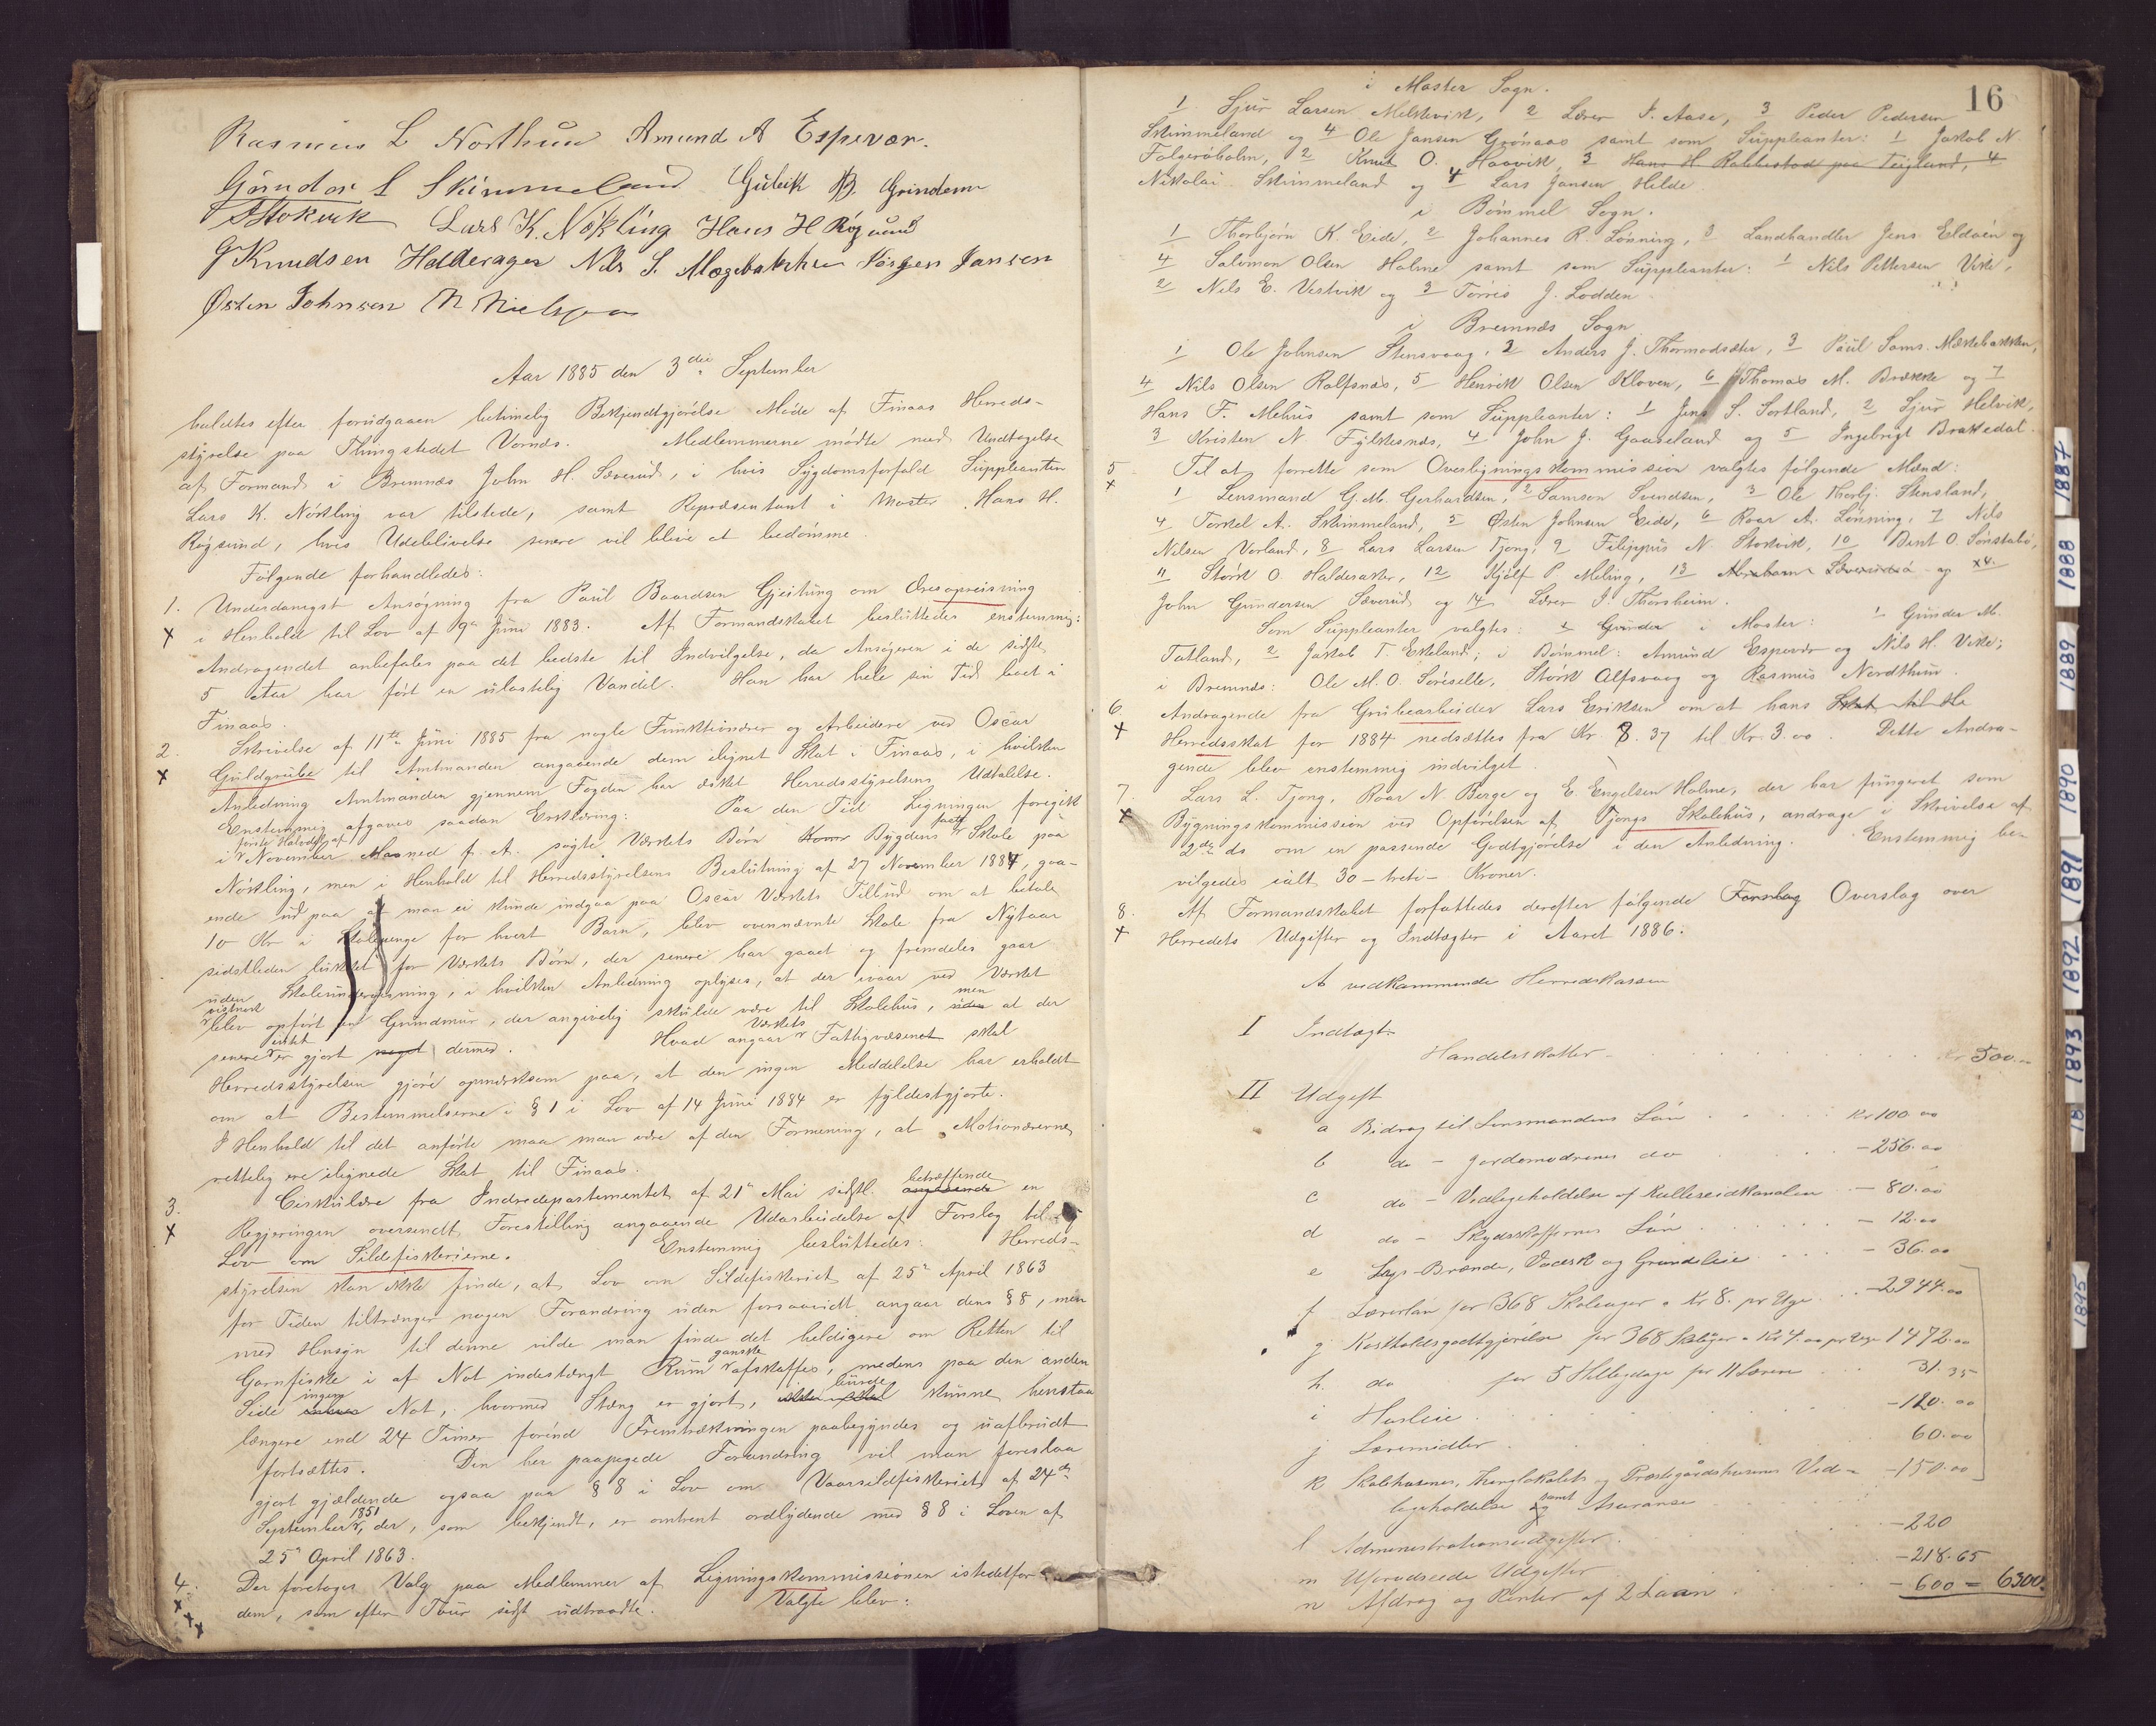 Rasmus L Northun Amund A Espevær.
Gunder L Skimmeland Guleik B. Grindem
Stokvik Lars K. Nökling Hans H Røgsund
G Knudsen Halderager Nils S. Mæg Jørgen Jansen
Østen Johnsen N Nielsen
Aar 1885 den 3die September
holdtes efter forudgaaen betimelig Bekjendtgjörelse Möde af Finaas Herreds-
styrelse paa Thingstedet Vornæs. Medlemmerne mödte med Undtagelse
af Formand i Bremnæs John H. Sæverud, i hvis Sygdomsforfald Suppleanten
Lars K. Nökling var tilstede, samt Repræsentant i Moster Hans H.
Røgsund, hvis Udeblivelse senere vil blive at bedömme.
Fölgende forhandledes:
1. Underdanigst Ansögning fra Paul Baardsen Gjeitung om Æresopreisning
x i Henhold til Lov af 9de Juni 1883. Af Formandskabet besluttedes enstemmig:
Andragendet anbefales paa det bedste til Indvilgelse, da Ansögeren i de sidste
5 Aar har fört en ulastelig Vandel. Han har hele sin Tid boet i
Finaas.
2. Skrivelse af 11te Juni 1885 fra nogle Funktionærer og Arbeidere ved Oscar
x Guldgrube til Amtmanden angaaende dem ilignet Skat i Finaas, i hvilken
Anledning Amtmanden gjennem Fogden har æsket Herredsstyrelsens Udtalelse.
Enstemmig afgaves saadan Erklæring: Paa den Tid Ligningen foregik
i første Halvdel af November Maaned f. A. sögte Værkets Börn Bygdens faste Skole paa
Nökling, men i Henhold til Herredsstyrelsens Beslutning af 27 November 1884, gaa-
ende ud paa at man ei kunde indgaa paa Oscar Værkets Tilbud om at betale
10 Kr i Skolepenge for hvert Barn, blev ovennævnte Skole fra Nytaar
sidstleden lukket for Værkets Börn, der senere har gaaet og fremdeles gaar
uden Skoleundervisning, i hvilken Anledning oplyses, at der ivaar ved Værket
vistnok blev opfört en Grundmur, der angivelig skulde være til Skolehus, men uden at der
senere er gjort intet noget dermed. Hvad angaar Værkets Fattigvæsenet skal
Herredsstyrelsen gjöre opmærksom paa, at den ingen Meddelelse har erholdt
om at Bestemmelserne i § 1 i Lov af 14 Juni 1884 er fyldestgjorte.
I Henhold til det anförte maa man være af den Formening, at Motionærerne
rettelig ere ilignede Skat til Finaas.
3. Cirkulære fra Indredepartementet af 21de Mai sidstl. betræffende angaaende en
x Regjeringen oversendt Forestilling angaaende Udarbeidelse af Forslag til
Lov om Sildefiskerierne. Enstemmig besluttedes: Herreds-
styrelsen kan ikke finde, at Lov om Sildefiskeriet af 25de April 1863
for Tiden tiltrænger nogen Forandring uden forsaavidt angaar dens § 8, men
med Hensyn til denne vilde man finde det heldigere om Retten til
Garnfiske i af Not indestængt Rum ganske afskaffes, medens paa den anden
Side ingen Not, hvormed Stæng er gjort, burde kunne henstaa
længere end 24 Timer forend Fremtrækningen paabegyndes og uafbrudt
fortsættes. Den her paapegede Forandring vil man foreslaa
gjort gjældende ogsaa paa § 8 i Lov om Vaarsildfiskeriet af 24de
September 1851, der, som bekjendt, er omtrent ordlydende med § 8 i Loven af
25de April 1863.
4. Der foretoges Valg paa Medlemmer af Ligningskommissionen istedetfor
x x x dem, som efter Tour sidst udtraadte. Valgte blev:
16
i Moster Sogn.
1 Sjur Larsen Melkevik, 2 Lærer I. Aase, 3 Peder Pedersen
Skimmeland og 4 Ole Jansen Grönaas samt som Suppleanter: 1 Jakob N
Folgeröholm, 2 Knut O. Haavik, 3 Hans H. Rabbestad paa Teigland, 4
Nikolai Skimmeland og 4 Lars Jansen Hilde.
i Bömmel Sogn.
1 Thorbjørn K. Eide, 2 Johannes R. Lönning, 3 Landhandler Jens Eldöen og
4 Salomon Olsen Holme samt som Suppleanter: 1 Nils Pettersen Vike,
2 Nils E. Vestvik og 3 Torris J. Lodden
i Bremnæs Sogn
1 Ole Johnsen Stensvaag, 2 Anders J. Thormodsæter, 3 Paul Sams. Mækebakken,
4 Nils Olsen Rolfsnæs, 5 Henrik Olsen Kloven, 6 Thomas M. Brække og 7
Hans F. Mehus samt som Suppleanter: 1 Jens S. Sortland, 2 Sjur Helvik,
3 Kristen N. Fylkesnæs, 4 John J. Gaaseland og 5 Ingebrigt Brakedal.
5 Til at forrette som Overligningskommission valgtes fölgende Mænd:
x 1 Lensmand G. M. Gerhardsen, 2 Samson Svendsen, 3 Ole Thorbj. Stensland,
4 Torkel A. Skimmeland, 5 Østen Johnsen Eide, 6 Roar A. Lönning, 7 Nils
Nilsen Vorland, 8 Lars Larsen Tjong, 9 Filippus N. Stokvik, 10 Bent O. Sönstabö,
11 Störk O. Halderaker, 12 Kjölf P. Meling, 13 Abraham og
John Gundersen Sæverud og 14 Lærer I. Thorsheim.
Som Suppleanter valgtes: 1 Gunder i Moster: 1 Gunder M.
Tatland, 2 Jakob T. Eskeland; i Bömmel: Amund Espevær og Nils H. Vike;
i Bremnæs: Ole M. O. Söreselle, Störk Alfsvaag og Rasmus Nordthun.
6. Andragende fra Grubearbeider Lars Eriksen om at hans Skat til He
x Herredsskat for 1884 nedsættes fra Kr. 8.37 til Kr. 3.00. Dette Andra-
gende blev enstemmig indvilget.
7. Lars L. Tjong, Roar N. Berge og E. Engelsen Holme, der har fungeret som
x Bygningskommission ved Opförelsen af Tjongs Skolehus, andrage i Skrivelse af
2den ds om en passende Godtgjörelse i den Anledning. Enstemmig be-
vilgedes ialt 30 - treti - Kroner.
8. Af Formandskabet forfattedes derefter fölgende Forslag Overslag over
x Herredets Udgifter og Indtægter i Aaret 1886.
A vedkommende Herredskassen
I Indtægt
Handelsskatter - 500.-
II Udgift
a Bidrag til Lensmandens Lön Kr 100.00
b do - Jordemodrenes do - 256.00
c do - Vedligeholdelse af Rullereidkanalen - 80.00
d do - Skydsskaffernes Lön - 12.00
e Lys- Brænde, Vadsk og Grundleie - 36.00
f Lærerlön for 368 Skoleuger a Kr 8. pr Uge - 2944.00
g Kostholdsgodtgjörelse for 368 Skoluger a Kr 4.00 pr Uge 1472.00
h. do for 5 Helligdage for 11 Lærere 31.35
i Husleie - 120.00
j Læremidler 60.00
k Skolehusenes, Thinglokalets og Præstegaardshusenes Ved- - 150.00
ligeholdelse og samt Assuranse
l Administrationsudgifter - 220
m Uforudseede Udgifter - 218.65
n Afdrag og Renter af 2 Laan - 600 = 6300.
1887
1888
1889
1890
1891
1892
1893
18
1895